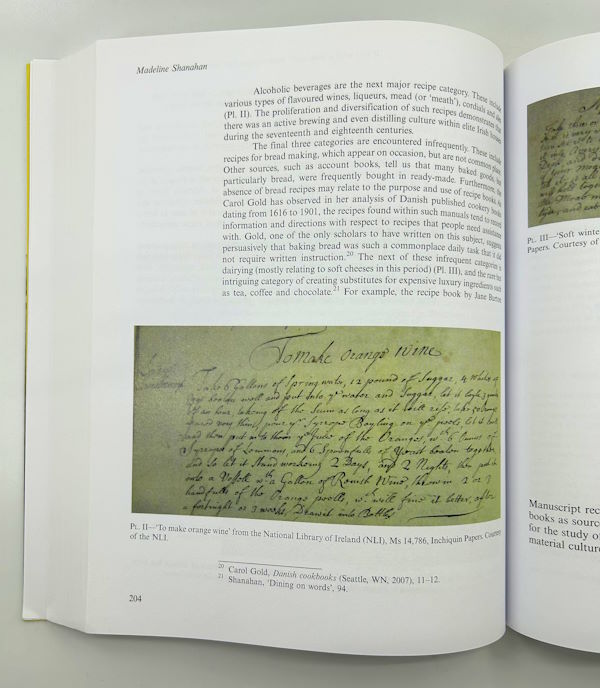 Madeline Shanahan
Alcoholic beverages are the next major recipe category. These include
various types of flavoured wines, liqueurs, mead (or 'meath'), cordials and
(Pl. II). The proliferation and diversification of such recipes demonstrates that
there was an active brewing and even distilling culture within elite Irish
during the seventeenth and eighteenth centuries.
The final three categories are encountered infrequently. These include
recipes for bread making, which appear on occasion, but are not common
Other sources, such as account books, tell us that many baked goods,
particularly bread, were frequently bought in ready-made. Furthermore, the
absence of bread recipes may relate to the purpose and use of recipe books. As
Carol Gold has observed in her analysis of Danish published cookery books
dating from 1616 to 1901, the recipes found within such manuals tend to
information and directions with respect to recipes that people need assistance
with. Gold, one of the only scholars to have written on this subject, suggests
persuasively that baking bread was such a commonplace daily task that it did
not require written instruction.20 The next of these infrequent categories is
dairying (mostly relating to soft cheeses in this period) (Pl. III), and the
intriguing category of creating substitutes for expensive luxury ingredients such
as tea, coffee and chocolate.21 For example, the recipe book by Jane Burton
To make Orange Wine
Take 6 Gallons of Spring water, 12 pound of Suggar, 4 Whites of
Eggs beaten well and put into ye water and Suggar, let it boyle
of an hour, taking of the Scum as long as it will rise, take 50 Oranges
pared very thin, pour ye Syrope Boyling on ye peels, let it
and then put into them ye Juice of the Oranges, wth 6 Ounces of
Syrope of Lemmons, and 6 Spoonfulls of Yeast beaten together
and so let it Stand working 2 Days, and 2 Nights, then put it
into a Vessell wth a Gallon of Renish Wine, throw in 2 or 3
handfulls of the Orange peells, wch will fine it better, after
a fortnight or 3 weeks Draw it into Bottles
PL. II—'To make orange wine' from the National Library of Ireland (NLI), Ms 14,786, Inchiquin Papers. Courtesy
of the NLI.
20 Carol Gold, Danish cookbooks (Seattle, WN, 2007), 11–12.
21 Shanahan, 'Dining on words', 94.
204
PL. III—'Soft winte
Papers. Courtesy of
Manuscript rec
books as sourc
for the study o
material cultur